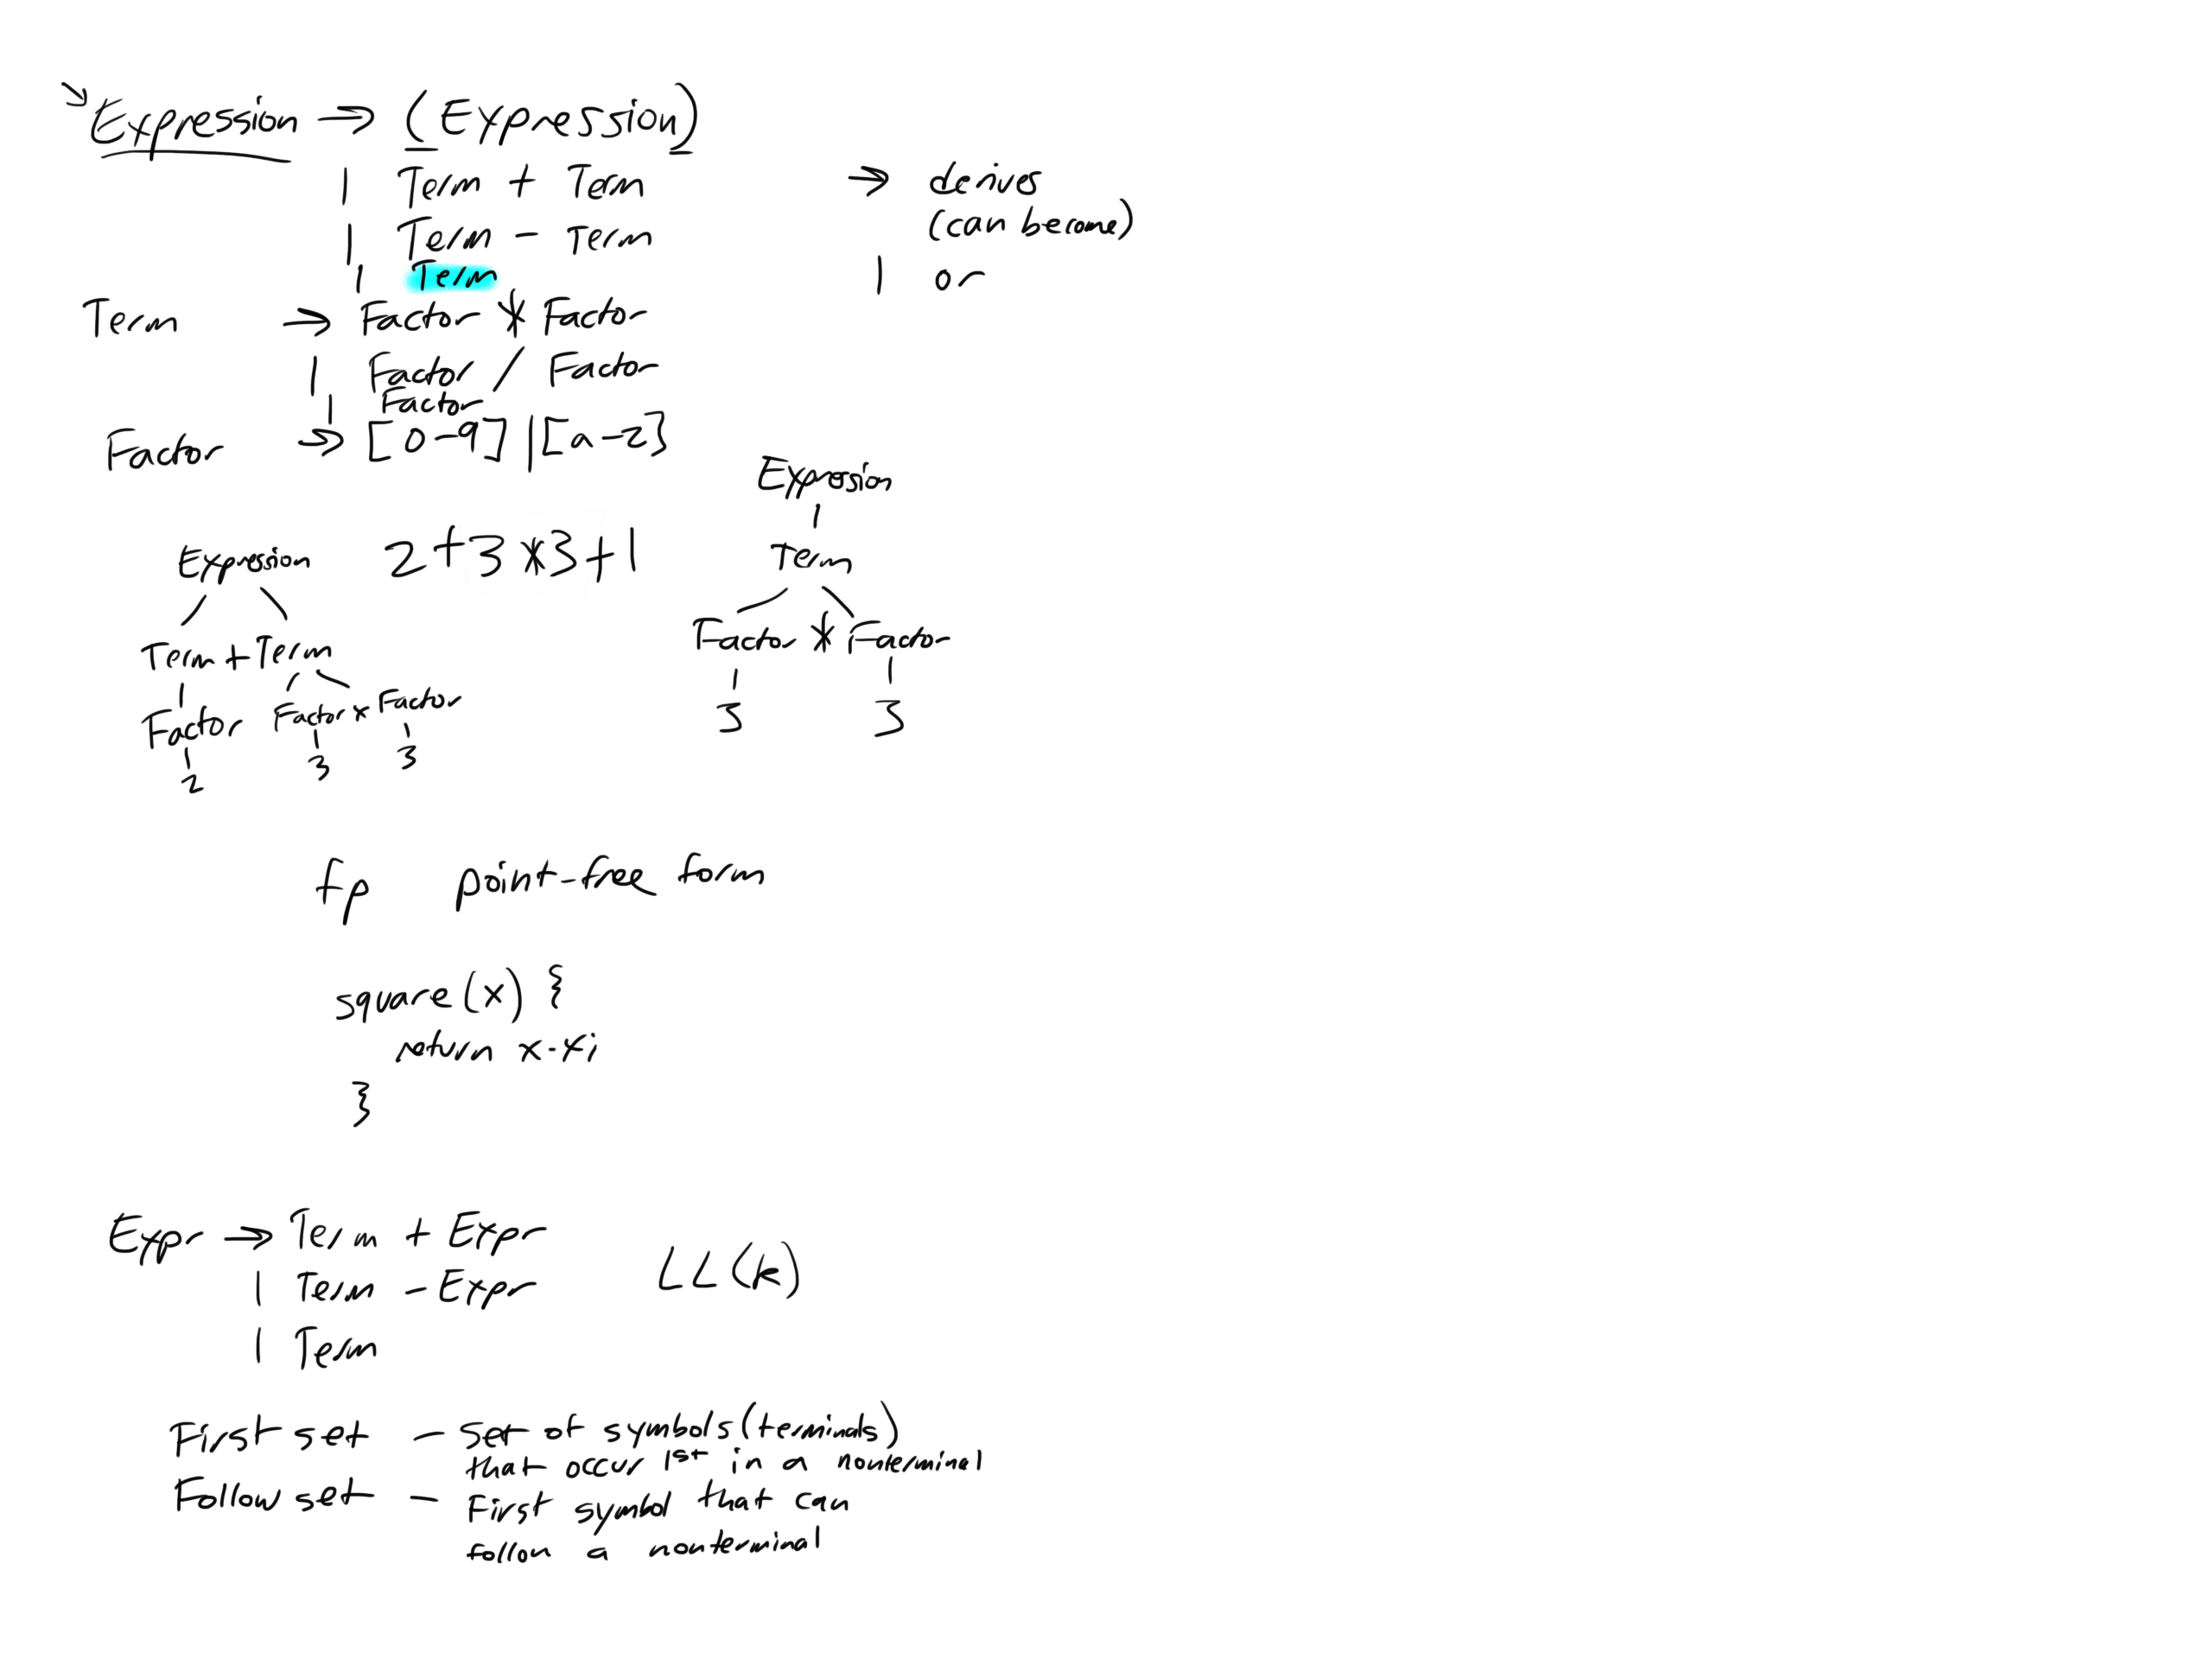 Expression → (Expression)
| Term + Term
| Term - Term
| Term
Term → Factor * Factor
| Factor / Factor
| Factor
Factor → [0-9] | [a-z]
→ derives
(can become)
| or
2+3*3+1
Expression
Term + Term
Factor Factor * Factor
2 3 3
Expression
Term
Factor * Factor
3 3
fp point-free form
square(x) {
return x·x;
}
Expr → Term + Expr
| Term - Expr
| Term
LL(k)
First set - set of symbols (terminals)
that occur 1st in a nonterminal
Follow set - First symbol that can
follow a nonterminal